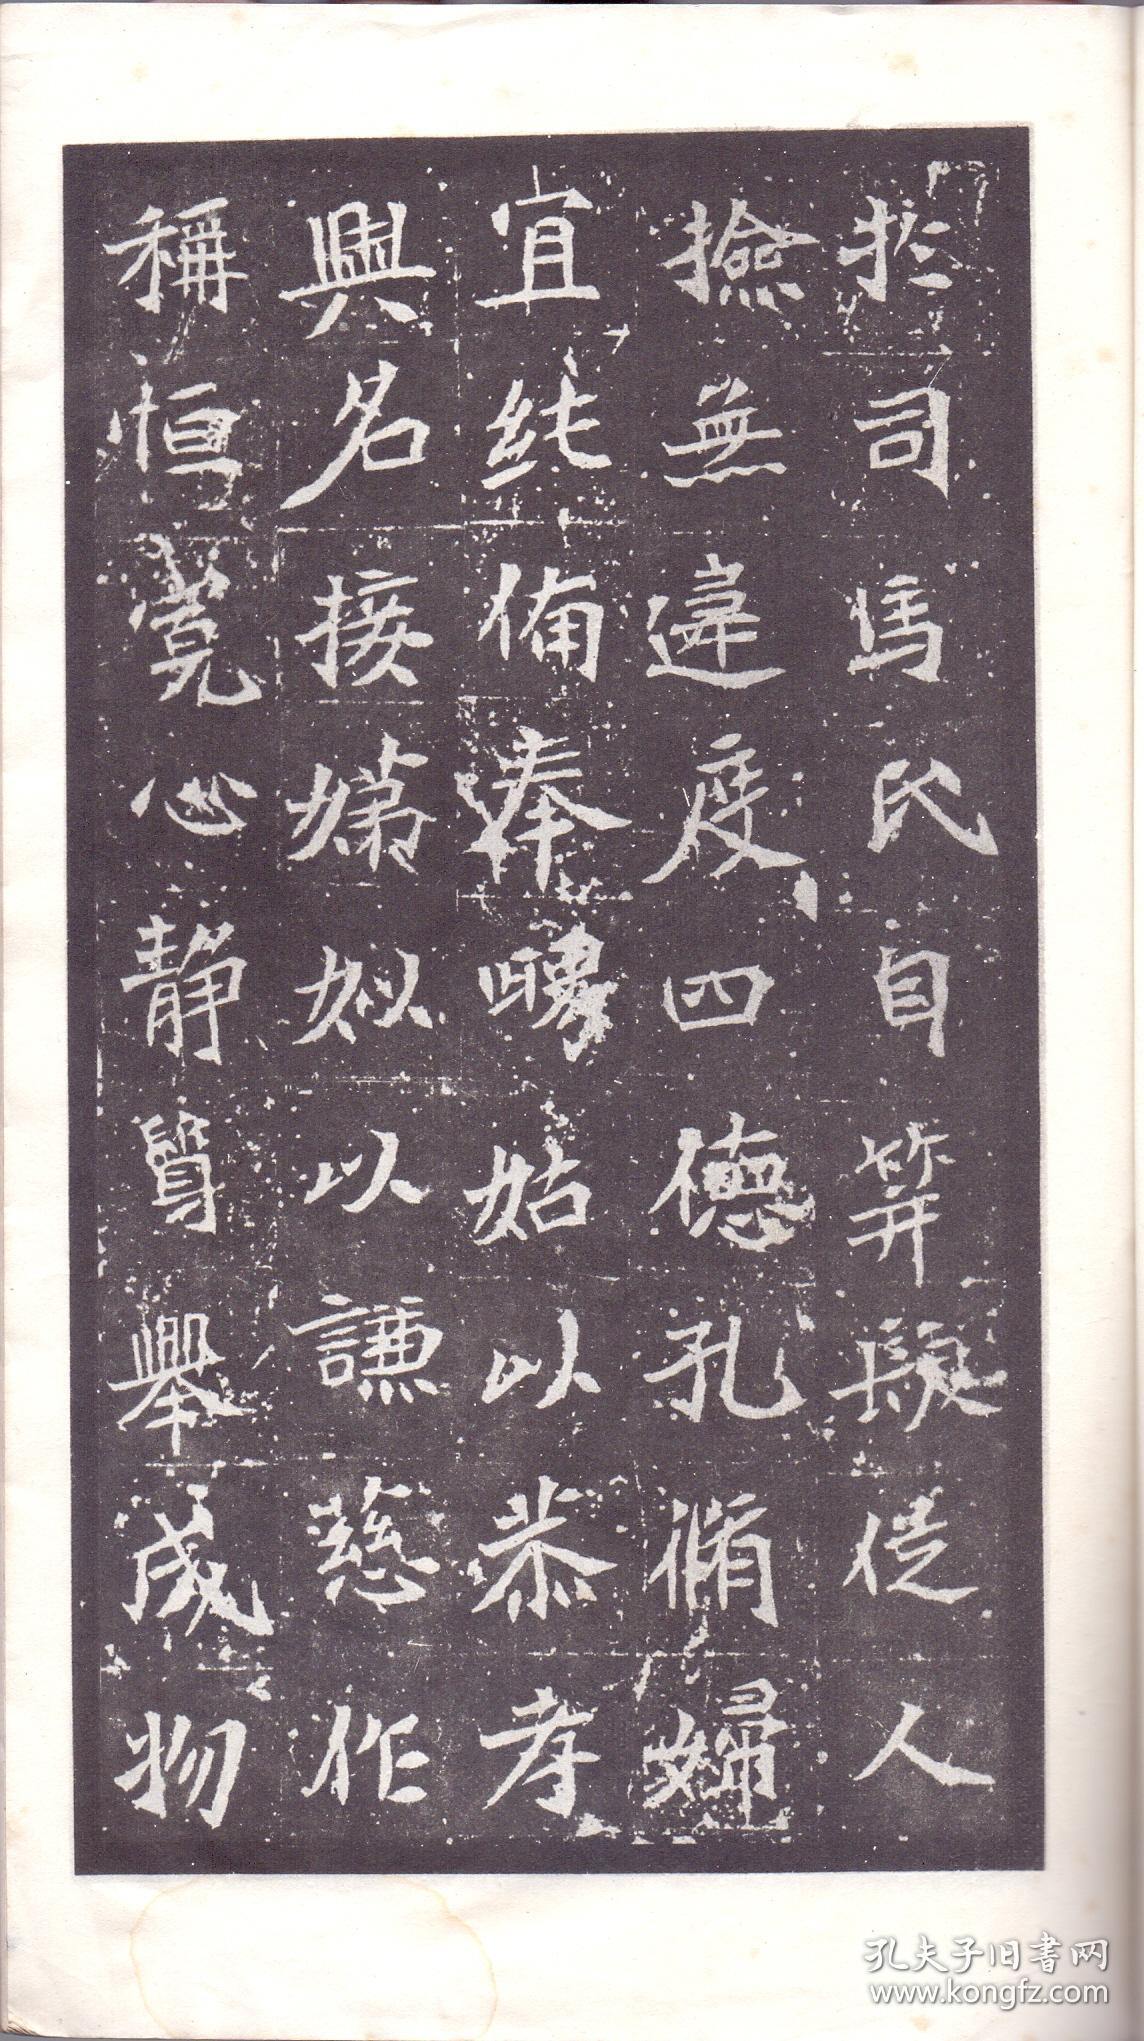 扵司馬氏自笄㩀従人
撿無違度四德孔脩婦
宜純備奉嫓姑以恭孝
興名接娣姒以謙慈作
稱恒寬心静質舉成物
孔夫子旧書网
www.kongfz.com